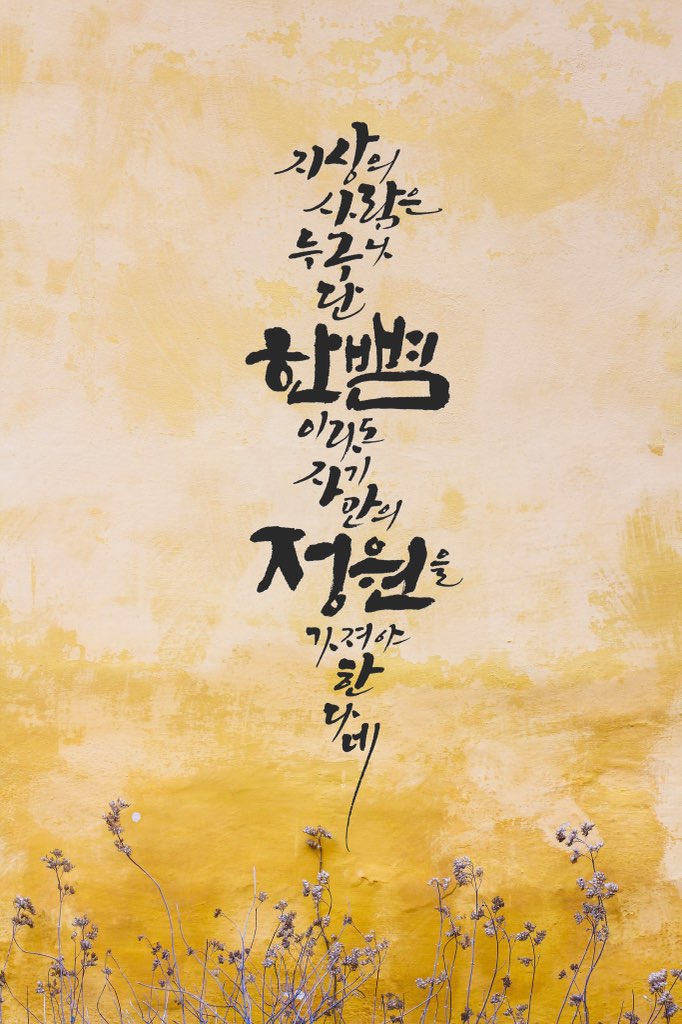 지상의
사람은
누구나
단
한뼘
이라도
자기
만의
정원을
가져야
한
다
네